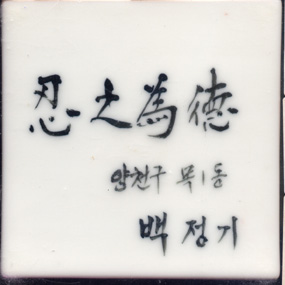 忍之為德
양천구 목1동
백정기